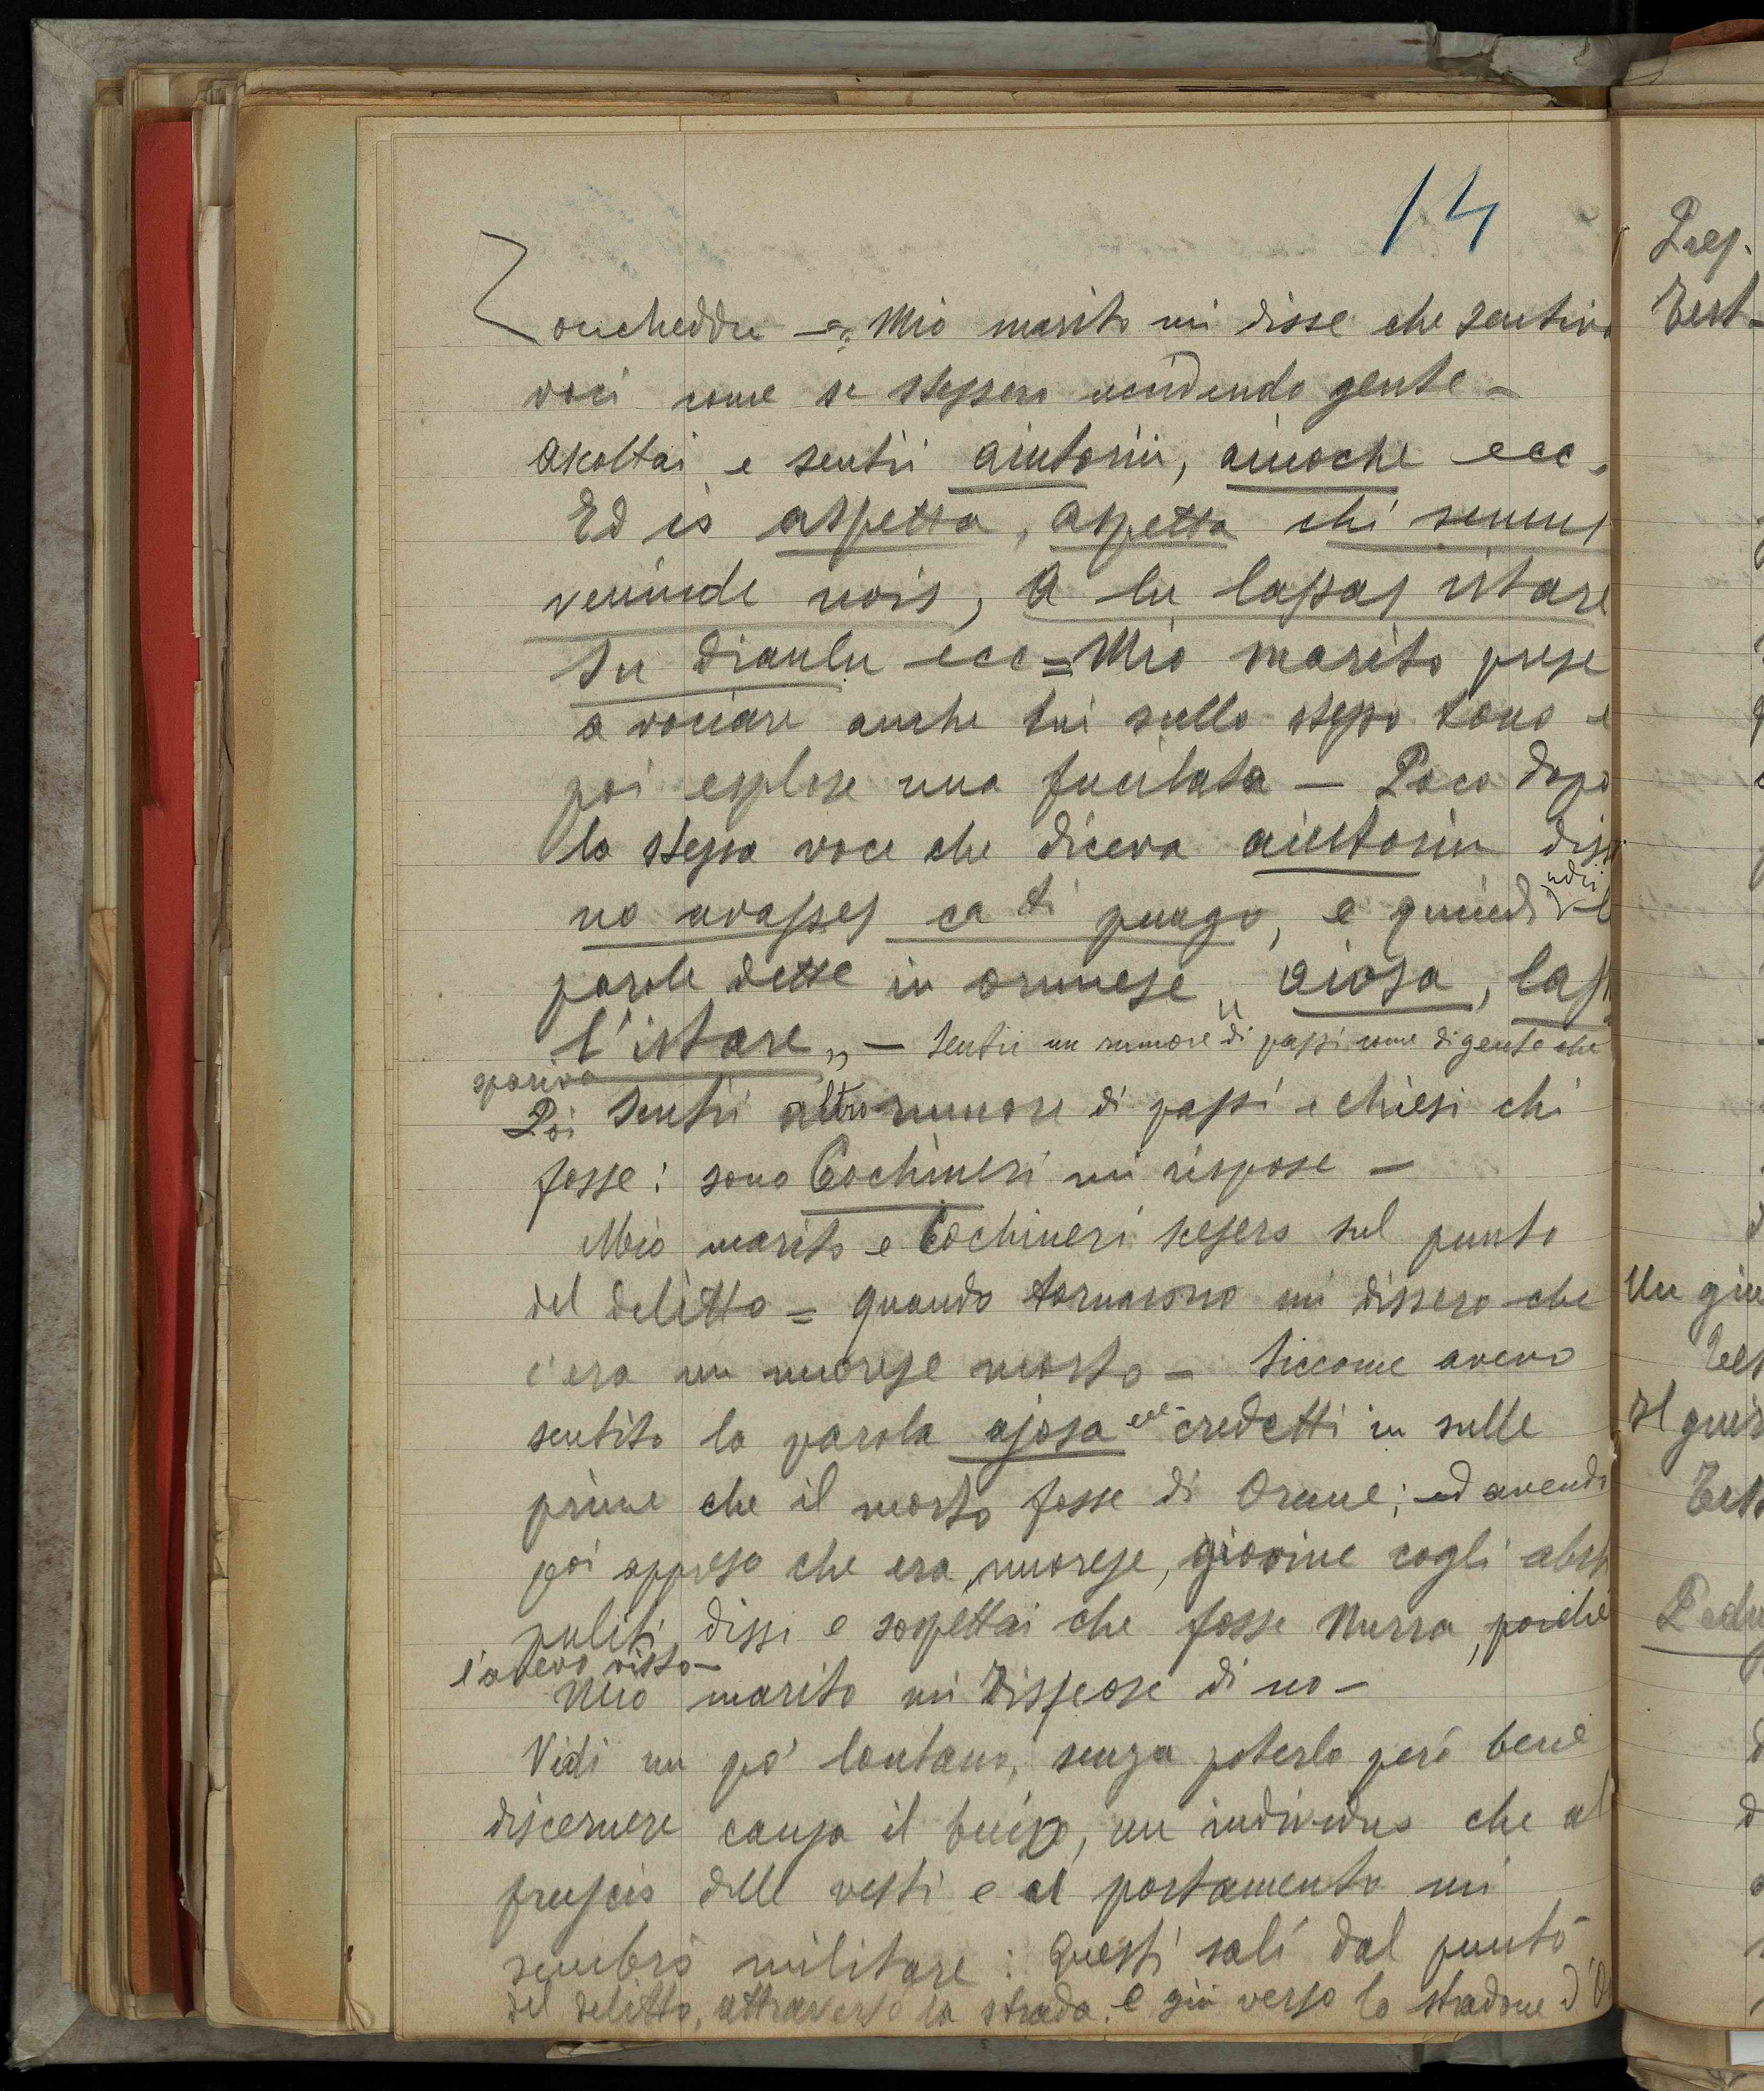 14
Zoncheddu — Mio marito mi disse che sentiva
voci come se stessero uccidendo gente —
Ascoltai e sentii aiutoriu, aiuoche ecc.
Ed io aspetta, aspetta chi semus
veninde nois, a lu lassas istare
su diaulu ecc = Mio marito prese
a vociare anche lui sullo stesso tono e
poi esplose una fucilata — Poco dopo
la stessa voce che diceva aiutoriu
udii
no ca ti pungo, e quindi
parole dette in orunese „ aiosa,
l'istare „ — Sentii un rumore di passi come di gente che
spariva
Poi sentii altro rumore di passi e chiesi chi
fosse: sono Cochineri mi rispose —
Mio marito e Cochineri scesero sul punto
del delitto = quando tornarono mi dissero che
c'era un nuorese morto — Siccome avevo
sentito la parola ajosa ecc. credetti in sulle
prime che il morto fosse di Orune; ed avendo
poi appreso che era nuorese, giovine cogli
puliti, dissi e sospettai che fosse Murra, poiché
l'avevo visto —
Mio marito mi rispose di no —
Vidi un po' lontano, senza poterlo però bene
discernere causa il buio, un individuo che al
fruscio delle vesti e al portamento mi
sembrò militare: Questi salì dal punto
del delitto, attraversò la strada e giù verso lo stradone d'
Pres.
Test —
Un giu
Test
Il giur
Test